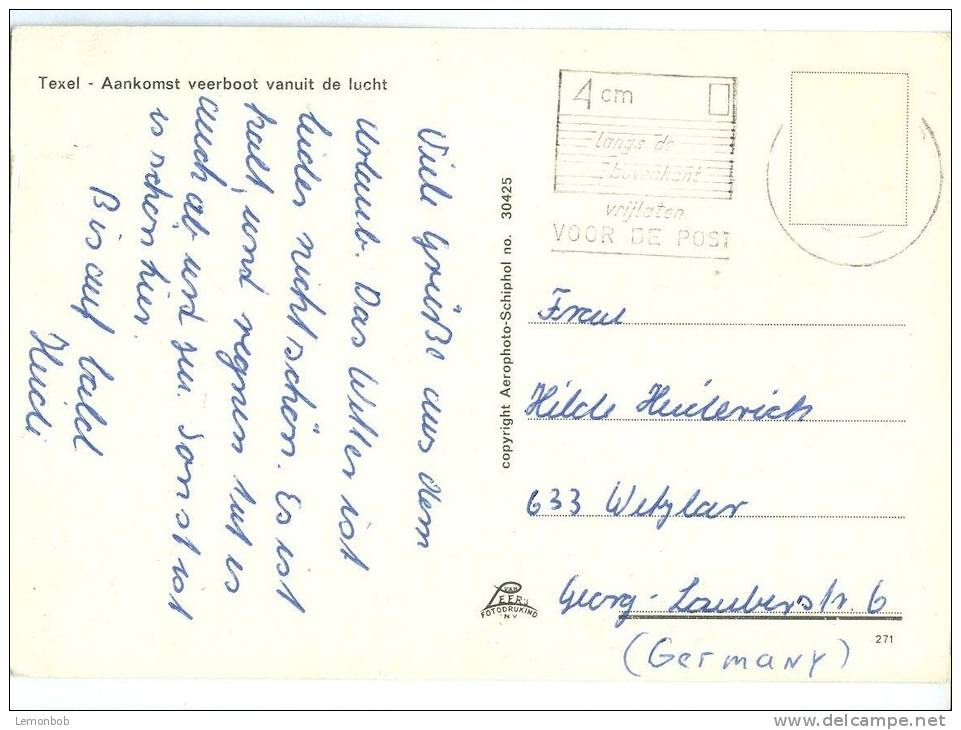 Texel - Aankomst veerboot vanuit de lucht
Viele Grüße aus dem
Urlaub. Das Wetter ist
leider nicht schön. Es ist
kalt, und regnen tut es
auch ab und zu. Sonst ist
es schön hier.
Bis auf bald
Heidi
copyright Aerophoto-Schiphol no. 30425
VAN
LEER's
FOTODRUKIND
N V
4 cm
langs de
bovenkant
vrijlaten
VOOR DE POST
Frau
Hilde Heiderich
633 Wetzlar
Georg-Lauberstr. 6
(Germany)
271
Lemonbob
delcampe.net